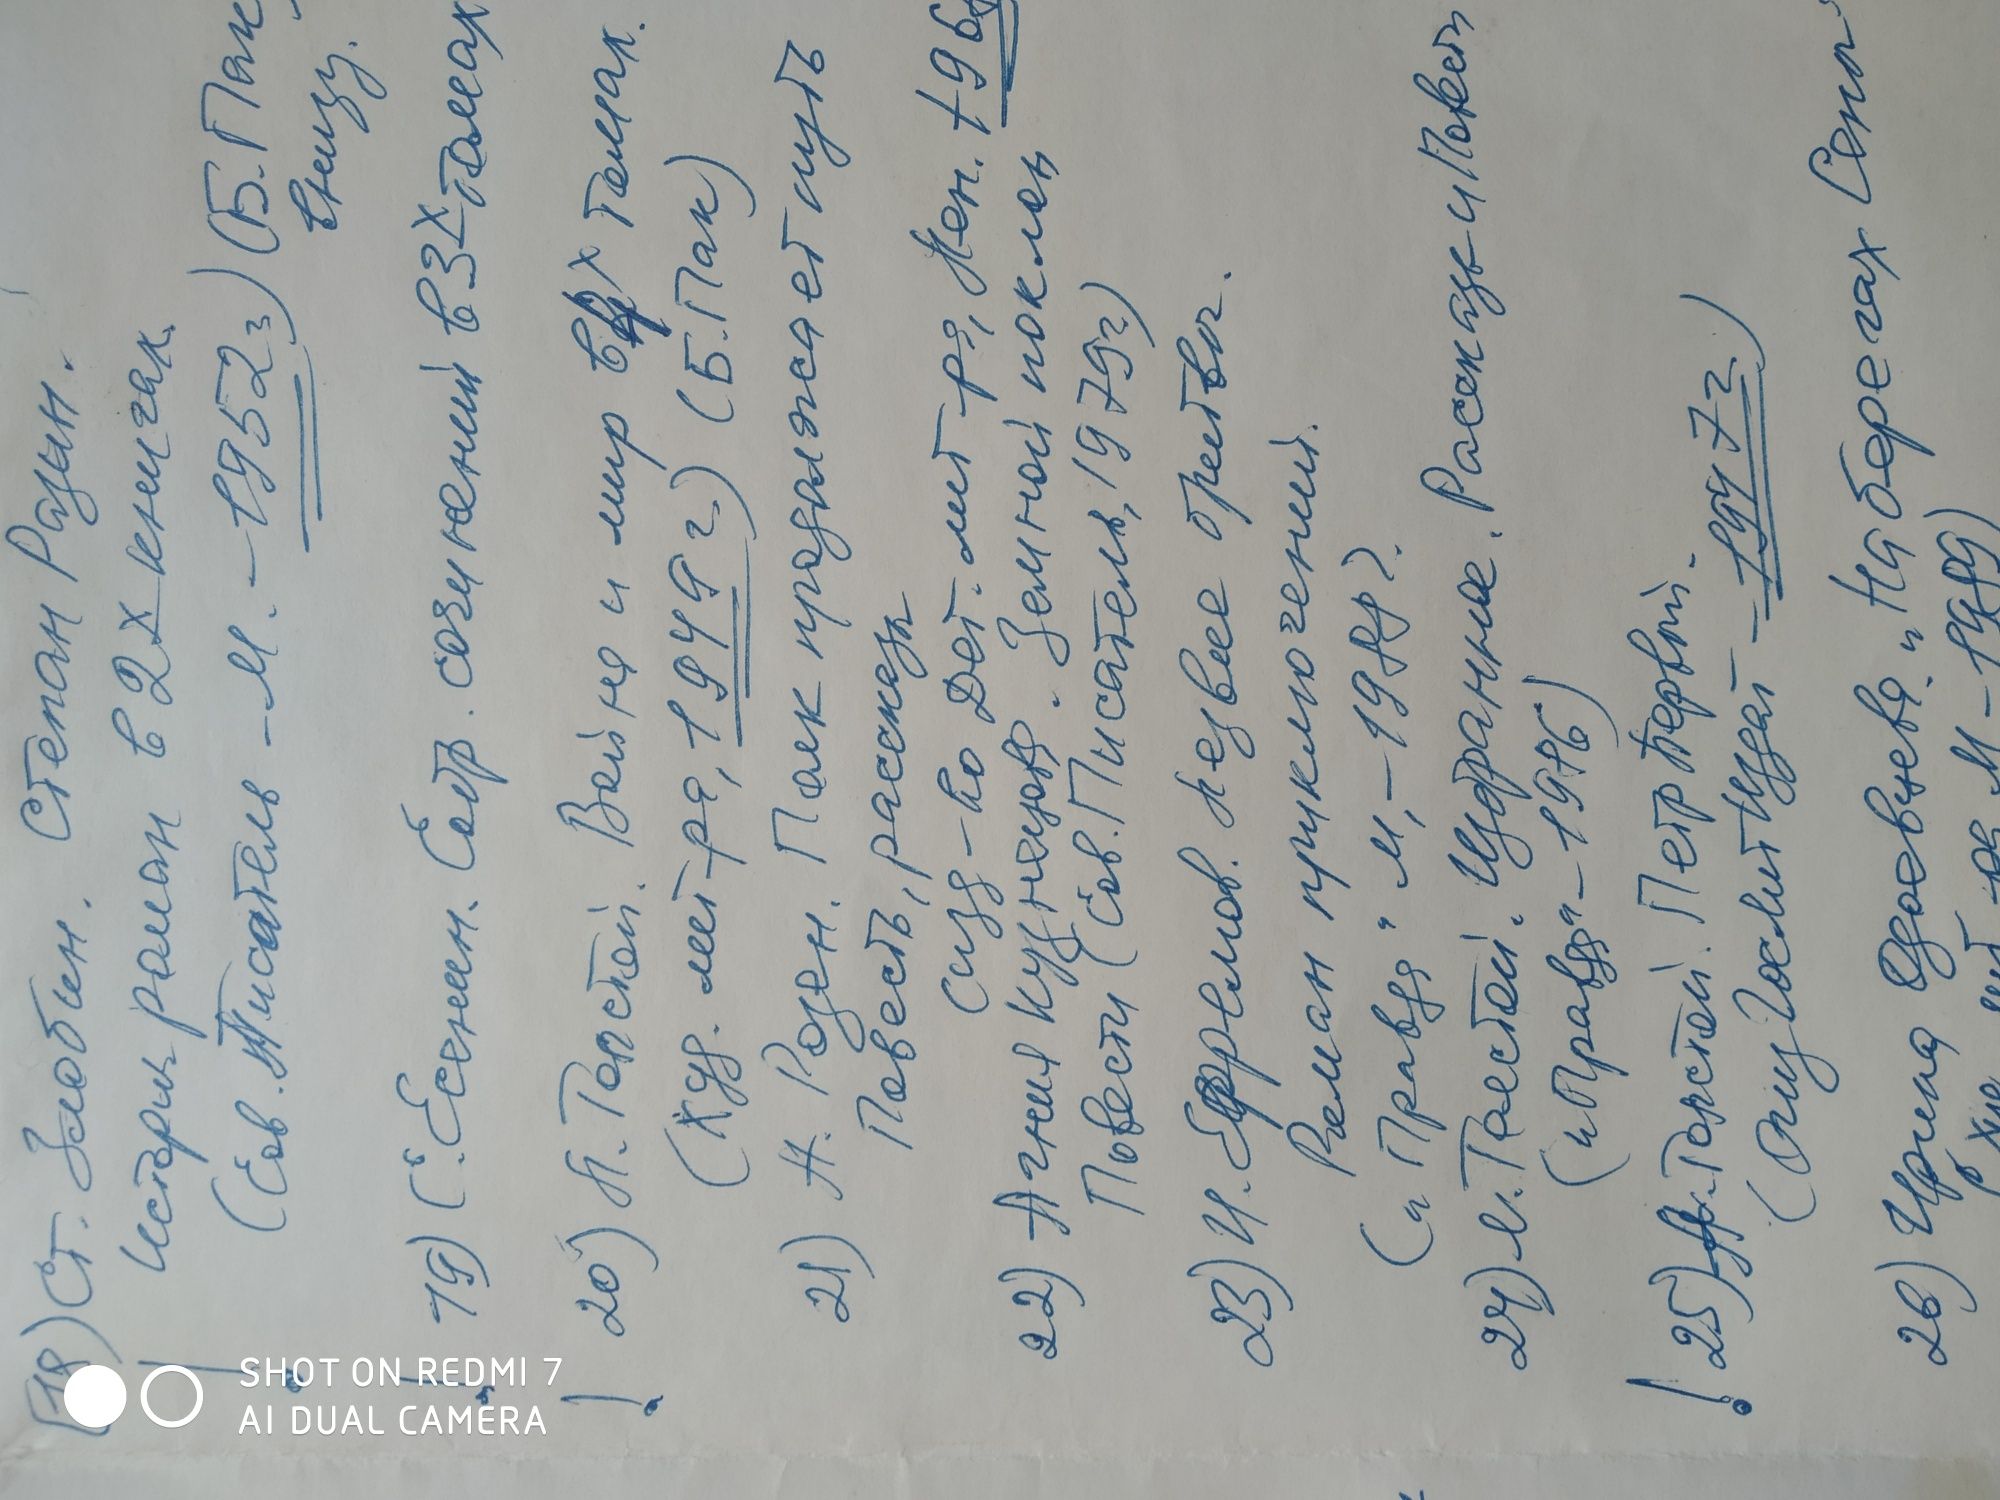 18) Ст. Злобин. Степан Разин.
Историч роман в 2х книгах
(Сов. Писатель – М. – 1952г) (Б. Пак,
внизу.
! 19) С. Есенин. Собр. сочинений в 3х томах
! 20) Л. Толстой. Война и мир в 2х томах.
(Худ. лит-ра, 1949г.) (Б. Пак)
21) А. Розен. Полк продолжает путь
Повесть, рассказы
Изд-во Дет. лит-ра, Лен. 196
22) Агния Кузнецова. Земной поклон
Повести (Сов. Писатель, 1979г)
23) И. Ефремов. Лезвие бритвы.
Роман приключений.
("Правда" М, – 1988г.
24) Л. Толстой. Избранное. Рассказы и Повести
("Правда" – 1986)
! 25) А. Толстой. Петр Первый.
(ОгизГослитИздат – 1947г.)
26) Ирина Одоевцева. "На берегах Сены"
(Худ лит-ра М – 1989)
SHOT ON REDMI 7
AI DUAL CAMERA